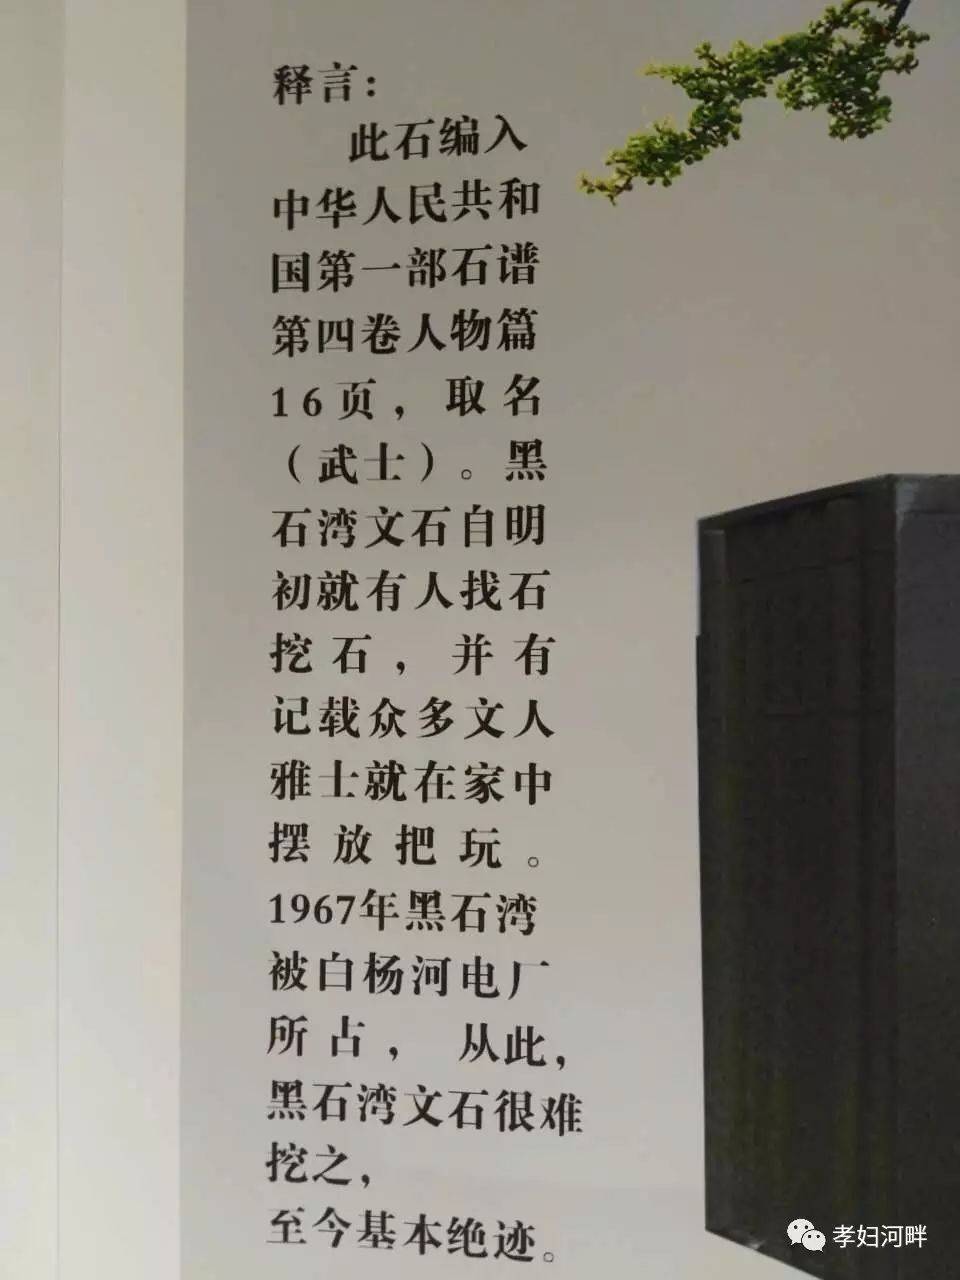 释言：
此石编入
中华人民共和
国第一部石谱
第四卷人物篇
16页，取名
（武士）。黑
石湾文石自明
初就有人找石
挖石，并有
记载众多文人
雅士就在家中
摆放把玩。
1967年黑石湾
被白杨河电厂
所占，从此，
黑石湾文石很难
挖之，
至今基本绝迹。
孝妇河畔